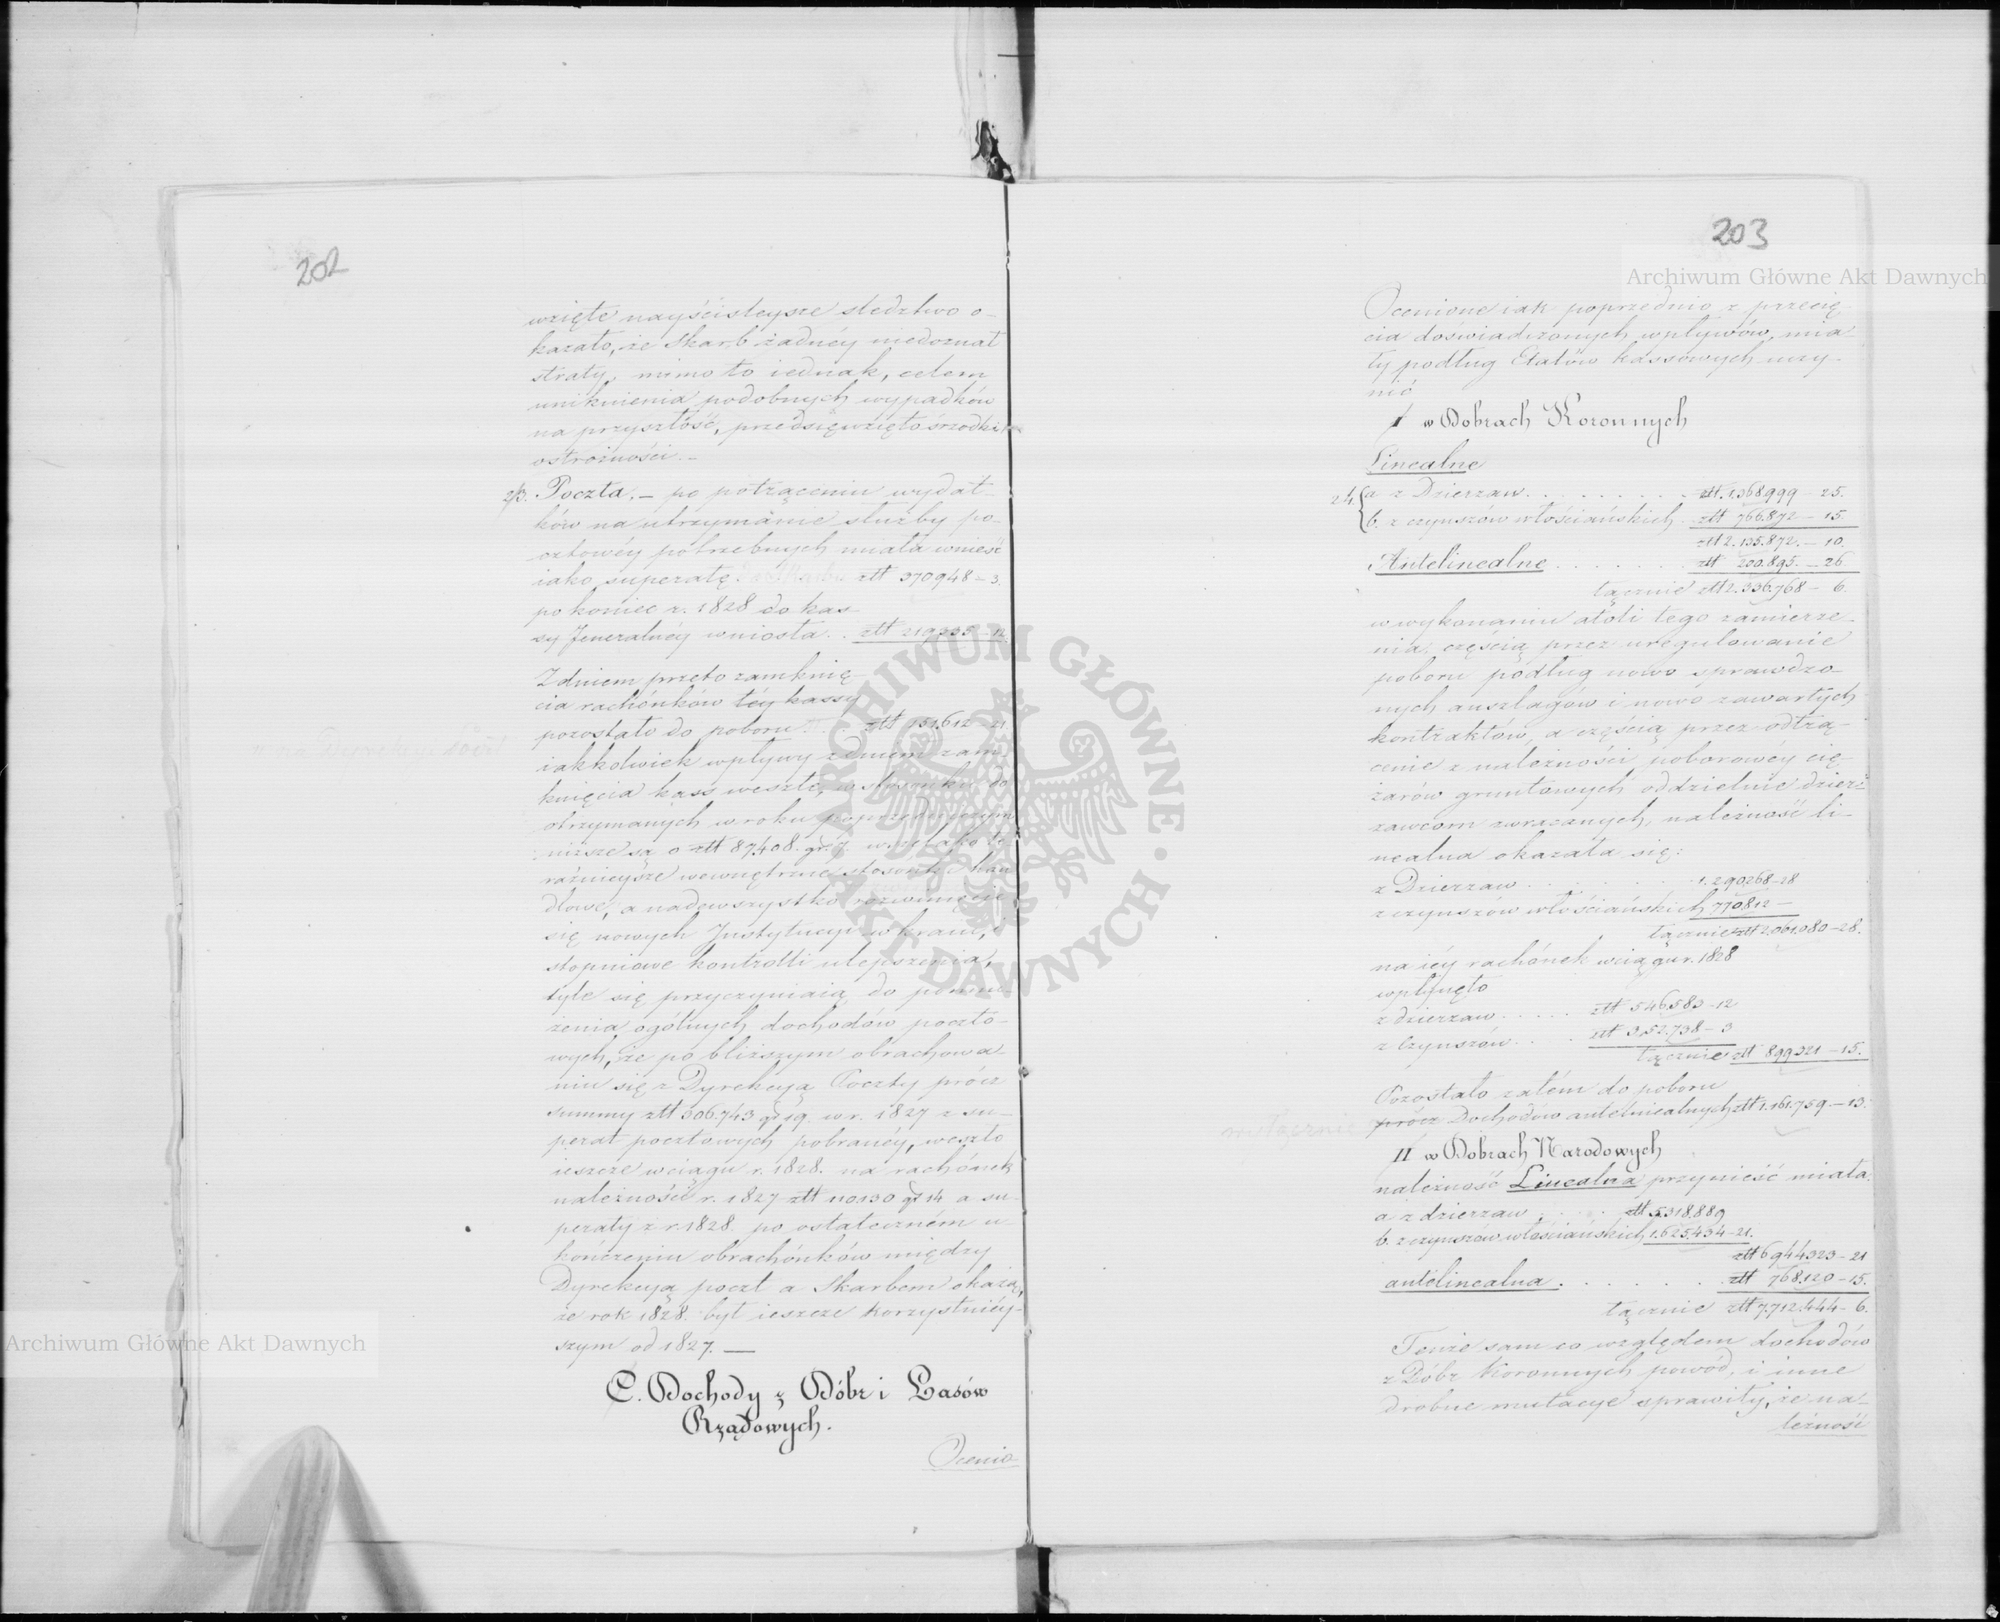 202
wzięte nayściśleysze śledztwo o-
kazało, że Skarb żadnéy niedoznał
straty, mimo to iednak, celem
uniknienia podobnych wypadków
na przyszłość, przedsięwzięto śrzodki
ostrożności.-
23. Poczta. – po potrąceniu wydat-
ków na utrzymanie służby po-
cztowéy potrzebnych miała wnieść
iako superatę złł 370948 – 3.
po koniec r. 1828 do kas-
sy Jeneralnéy wniosła . . złł 219335 – 12
Z dniem przeto zamknię-
cia rachónków téy kassy
pozostało do poboru złł 151.612 – 21
iakkolwiek wpływy z dniem zam-
knięcia kass weszłe, w stosunku do
otrzymanych w roku poprzedniczym
niższe są o złł 87,408. gr. 7. wszelako te
raźnieysze wewnętrzne stosunki han
dlowe, a nadewszystko rozwinięcie
się nowych Instytucyi w kraiu, i
stopniowe kontrolli ulepszenia,
tyle się przyczyniaią do pomno-
żenia ogólnych dochodów poczto-
wych, że po bliższym obrachowa-
niu się z Dyrekcyą Poczty prócz
summy złł 306.743 gr 19. w r. 1827 z su-
perat pocztowych pobranéy, weszło
ieszcze wciągu r. 1828. na rachónek
należności r. 1827 złł 110130 gr 14 a su-
peraty z r. 1828. po ostateczném u-
kończeniu obrachónków między
Dyrekcyą poczt a Skarbem okażą,
że rok 1828. był ieszcze korzystniéy-
szym od 1827. —
C. Dochody z Dóbr i Lasów
Rządowych.
Ocenio
203
Ocenione iak poprzednio z przecię-
cia doświadczonych wpływów, mia-
ły podług Etatów kassowych uczy-
nić
I w Dobrach Koronnych
Linealne
24. { a z Dzierzaw . . . . . . . . złł. 1.368,999 – 25.
b. z czynszów włościańskich złł 766.872 – 15.
złł 2.135.872. – 10.
Antelinealne . . . . . . . złł 200.895. – 26
łącznie złł 2.336.768 – 6.
w wykonaniu atoli tego zamierze-
nia, częścią przez uregulowanie
poboru podług nowo sprawdzo-
nych anszlagów i nowo zawartych
kontraktów, a częścią przez odtrą-
cenie z należności poborowéy cię-
żarów gruntowych oddzielnie dzier-
żawcom zwracanych, należność li-
nealna okazała się:
z Dzierzaw . . . . . . 1.290268 – 28
z czynszów włościańskich 770,812 –
łącznie złł 2.061.080 – 28.
na iéy rachónek wciągu r. 1828
wpłynęło
z dzierzaw . . . . . złł 546,583 – 12
z czynszów . . . złł 352.738 – 3
łącznie złł 899321 – 15.
Pozostało zatém do poboru
prócz Dochodów antelinealnych złł 1.161.759. – 13.
II w Dobrach Narodowych
należność Linealna przynieść miała
a z dzierzaw . . . złł 5318.889
b. z czynszów włościańskich 1.625,434 – 21.
złł 6944323 – 21
antelinealna . . . . . . złł 768.120 – 15.
łącznie złł 7.712.444 – 6.
Tenże sam co względem dochodów
z Dóbr Koronnych powód, i inne
drobne mutacye sprawiły, że na-
leżność
Archiwum Główne Akt Dawnych
Archiwum Główne Akt Dawnych
ARCHIWUM GŁÓWNE · AKT DAWNYCH ·